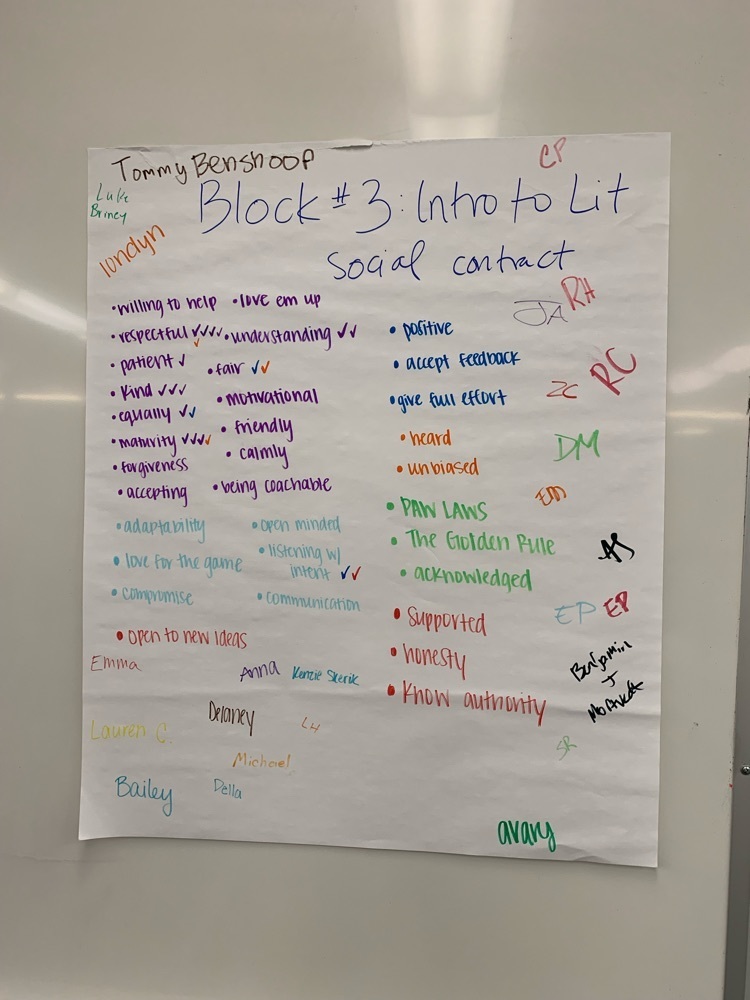 Tommy Benshoof
CP
Luke
Briney
Block #3: Intro to Lit
londyn
social contract
• willing to help
• love em up
• respectful ✓✓✓✓✓
• understanding ✓✓
• patient ✓
• fair ✓✓
• kind ✓✓✓
• motivational
• equally ✓✓
• friendly
• maturity ✓✓✓✓
• calmly
• forgiveness
• accepting
• being coachable
• adaptability
• open minded
• love for the game
• listening w/
intent ✓✓
• compromise
• communication
• open to new ideas
• positive
• accept feedback
• give full effort
• heard
• unbiased
• PAW LAWS
• The Golden Rule
• acknowledged
• Supported
• honesty
• Know authority
JA
RH
ZC
RC
DM
EM
AJ
EP
EP
Benjamin
J
SR
Emma
Anna
Kenzie Skerik
Lauren C.
Delaney
LH
Michael
Bailey
Della
avary